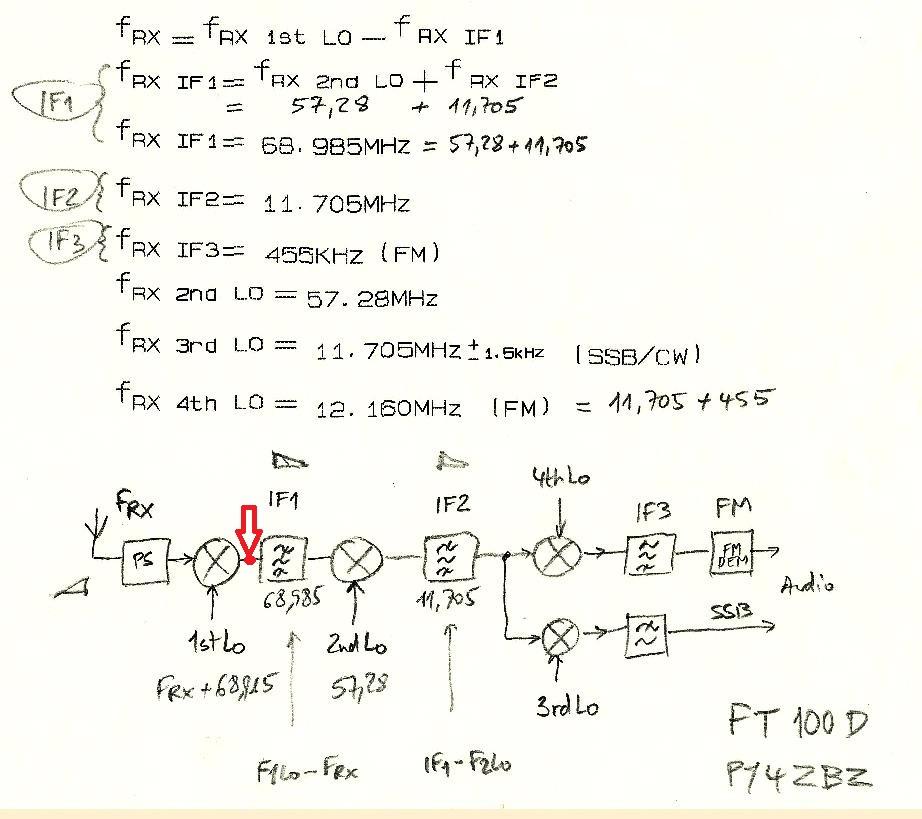 fRX = fRX 1st LO – f RX IF1
IF1 { fRX IF1= fRX 2nd LO + f RX IF2
= 57,28 + 11,705
fRX IF1= 68.985MHz = 57,28+11,705
IF2 { fRX IF2= 11.705MHz
IF3 { fRX IF3= 455KHz (FM)
fRX 2nd LO = 57.28MHz
fRX 3rd LO = 11.705MHz ± 1.5kHz (SSB/CW)
fRX 4th LO = 12.160MHz (FM) = 11,705 + 455
4th Lo
FRX IF1 IF2 IF3 FM
PS FM DEM
68,985 11,705 Audio
1st Lo 2nd Lo SSB
FRX + 68,985 57,28 3rd Lo
F1Lo – FRX IF1 – F2Lo
FT 100 D
PY4ZBZ